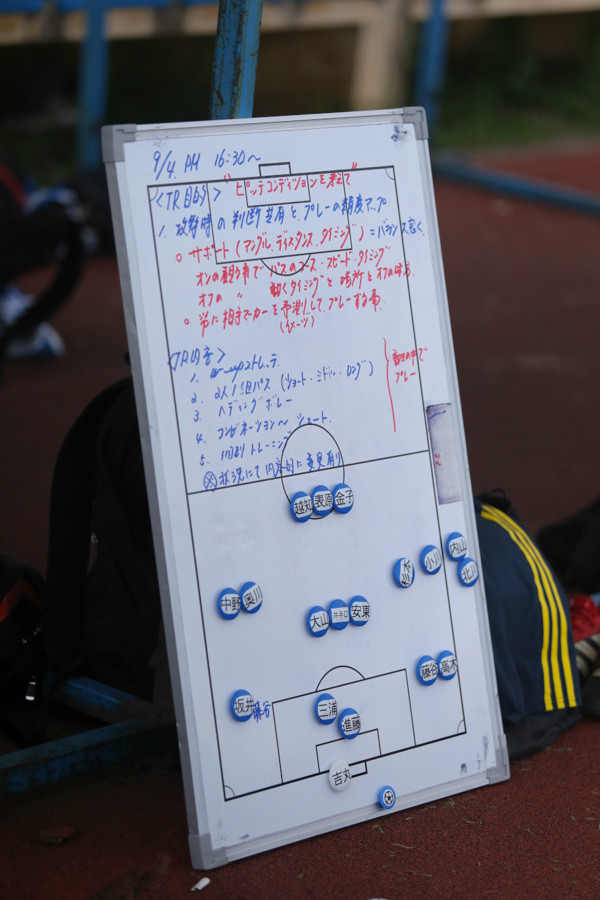 9/4 PM 16:30～
〈TR目的〉 "ピッチコンディションを考えて"
1. 攻撃時の判断共有と、プレーの精度アップ
○ サポート（アングル、ディスタンス、タイミング）= バランス良く、
オンの 事で パスのコース・スピード・タイミング
オフの 〃 動くタイミングと場所と オフの味方
○ 常に相手マーカーを予測して、プレーする事、
（イメージ）
〈TR内容〉
1. w-upストレッチ
2. 2人1組パス（ショート・ミドル・ロング）
3. ヘディングボレー
4. コンビネーション～ シュート
5. トレーニング
の中で
プレー
※ 状況にて 内容 変更有り
越知 表原 金子
内山
小川
北川
中野 奥川
大山 井口 安東
藤谷 高木
坂井
三浦
進藤
吉丸